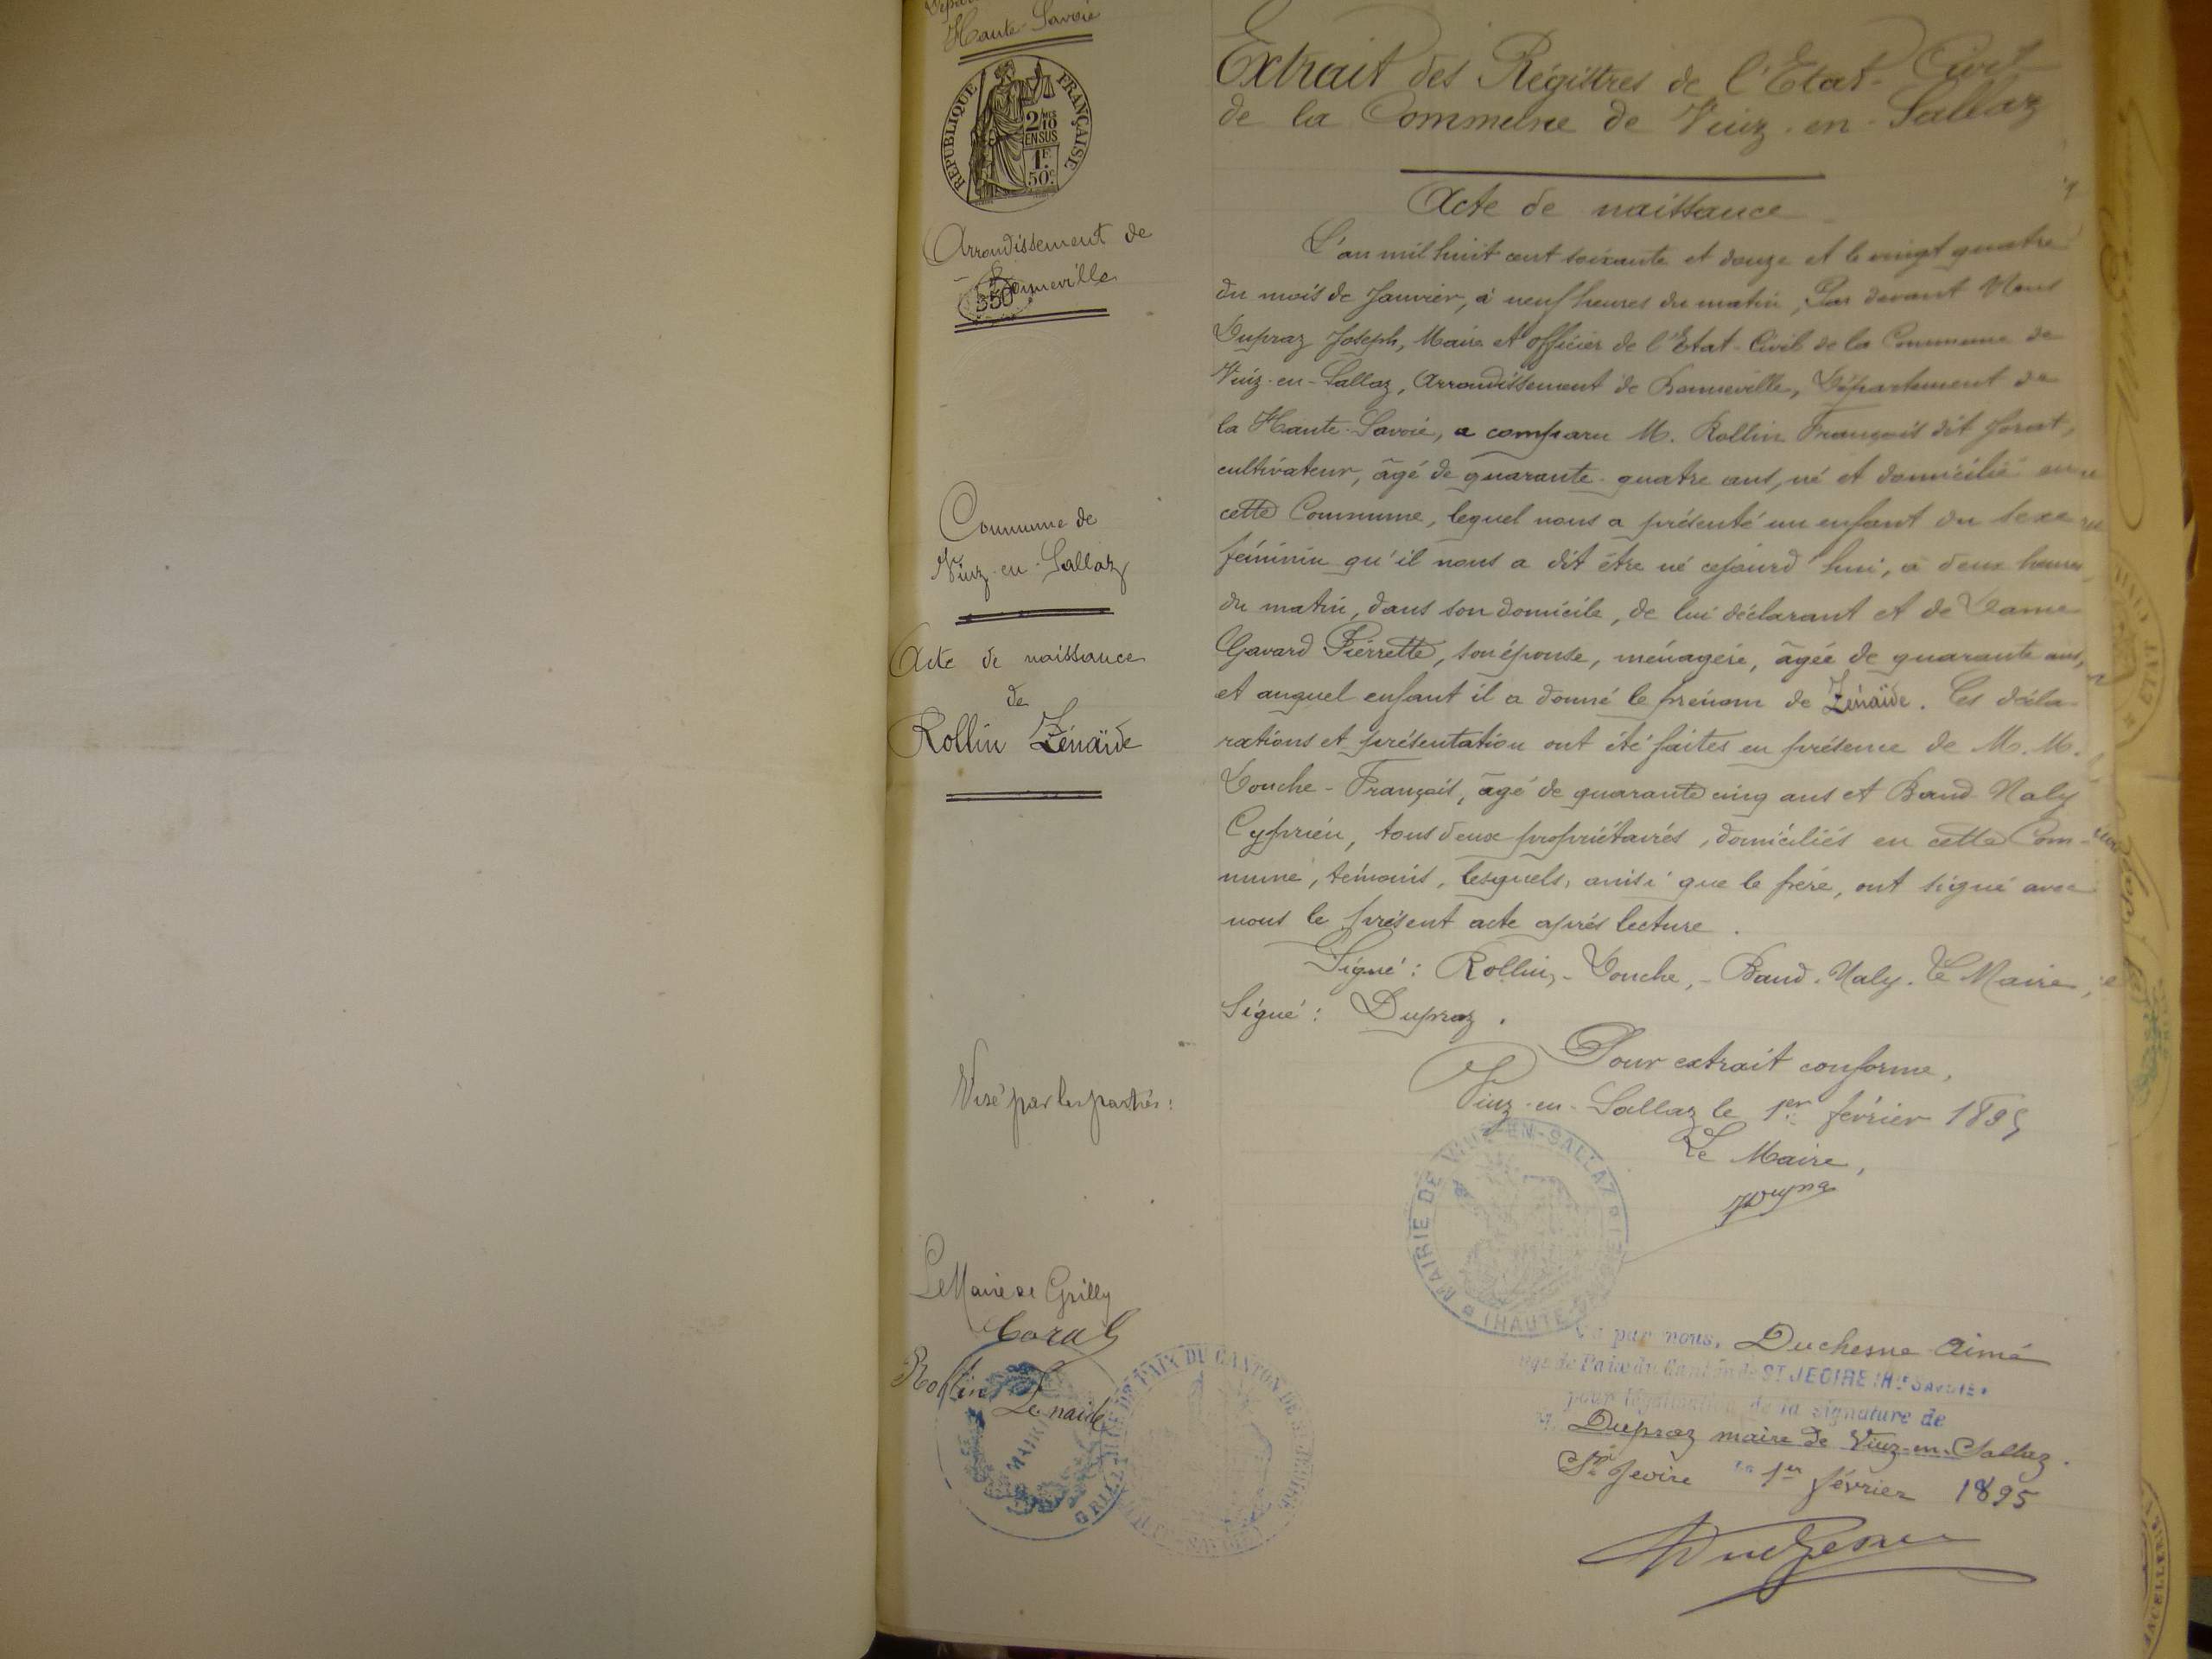 Haute-Savoie
REPUBLIQUE FRANÇAISE
2/10 EN SUS
1F. 50c.
Arrondissement de
Bonneville
350
Commune de
Viuz-en-Sallaz
Acte de naissance
de
Rollin Zénaïde
Visé par les parties:
Le Maire de Grilly
Rollin Zenaide
MAIRIE
GRILLY
JUSTICE DE PAIX DU CANTON DE ST JEOIRE
Extrait des Régistres de l'Etat-Civil
de la Commune de Viuz-en-Sallaz
Acte de naissance
L'an mil huit cent soixante et douze et le vingt quatre
du mois de Janvier, à neuf heures du matin, Par devant Nous
Dupraz Joseph, Maire et officier de l'Etat-Civil de la Commune de
Viuz-en-Sallaz, Arrondissement de Bonneville, Département de
la Haute-Savoie, a comparu M. Rollin François dit Jorat,
cultivateur, âgé de quarante-quatre ans, né et domicilié en
cette Commune, lequel nous a présenté un enfant du sexe
féminin qu'il nous a dit être né cejourd'hui, à deux heures
du matin, dans son domicile, de lui déclarant et de Dame
Gavard Pierrette, son épouse, ménagère, âgée de quarante ans,
et auquel enfant il a donné le prénom de Zénaïde. Ces décla-
rations et présentation ont été faites en présence de M. M.
Douche-François, âgé de quarante cinq ans et Baud-Naly
Cyprien, tous deux propriétaires, domiciliés en cette Com-
mune, témoins, lesquels, ainsi que le père, ont signé avec
nous le présent acte après lecture.
Signé: Rollin, - Douche, - Baud-Naly. Le Maire,
Signé: Dupraz.
Pour extrait conforme,
Viuz-en-Sallaz le 1er février 1895
Le Maire,
MAIRIE DE VIUZ-EN-SALLAZ
(HAUTE
Vu par nous, Duchesne Aimé
juge de Paix du Canton de ST JEOIRE (Hte SAVOIE)
pour légalisation de la signature de
M. Dupraz maire de Viuz-en-Sallaz.
St Jeoire le 1er février 1895
Duchesne